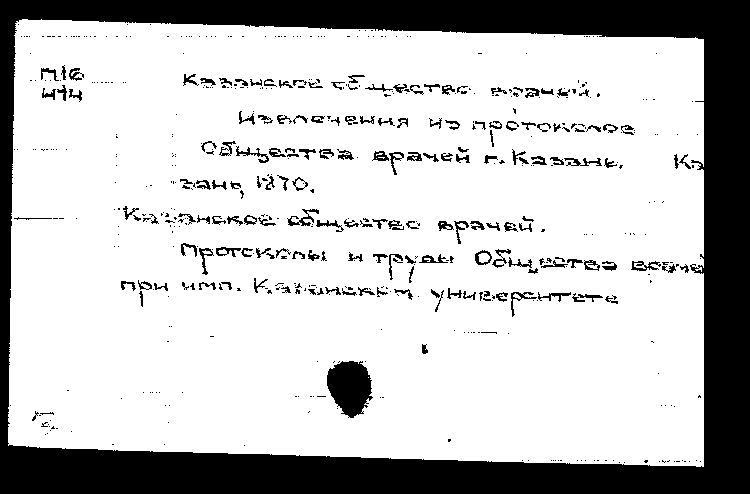 П16
474
Казанское общество врачей.
Извлечения из протоколов
Общества врачей г. Казань. Ка
зань, 1870.
Казанское общество врачей.
Протоколы и труды Общества враче
при имп. Казанском университете